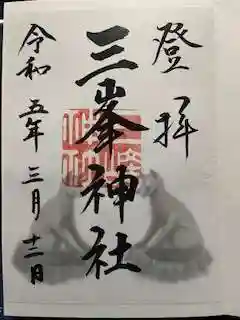 登拝
三峯神社
令和五年三月十二日